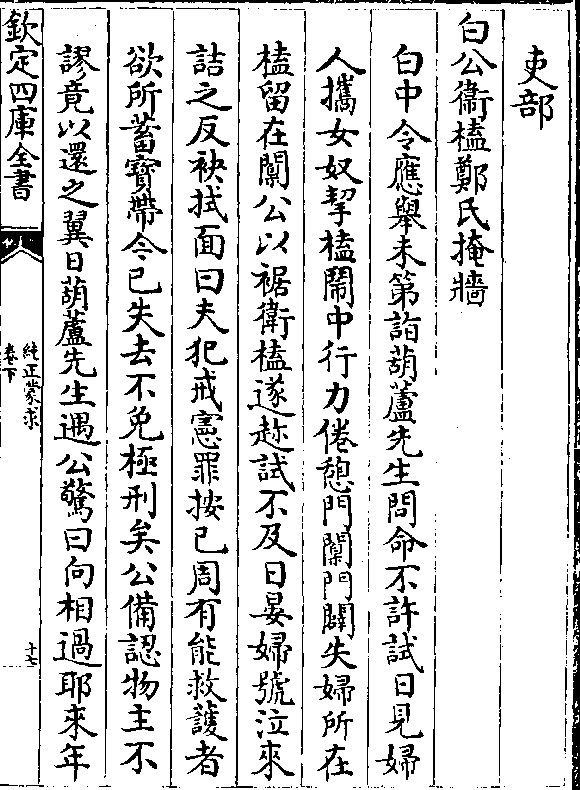 吏部
白公衞榼鄭氏掩牆
白中令應舉未第詣葫蘆先生問命不許試日見婦
人攜女奴挈榼鬧中行力倦憩門闑門闢失婦所在
榼留在闑公以裾衛榼遂趂試不及日晏婦號泣來
詰之反袂拭面曰夫犯戒憲罪按已周有能救護者
欲所蓄寳帶今已失去不免極刑矣公備認物主不
謬竟以還之翼日葫蘆先生遇公驚曰向相過耶來年
欽定四庫全書
純正蒙求
卷下
十七